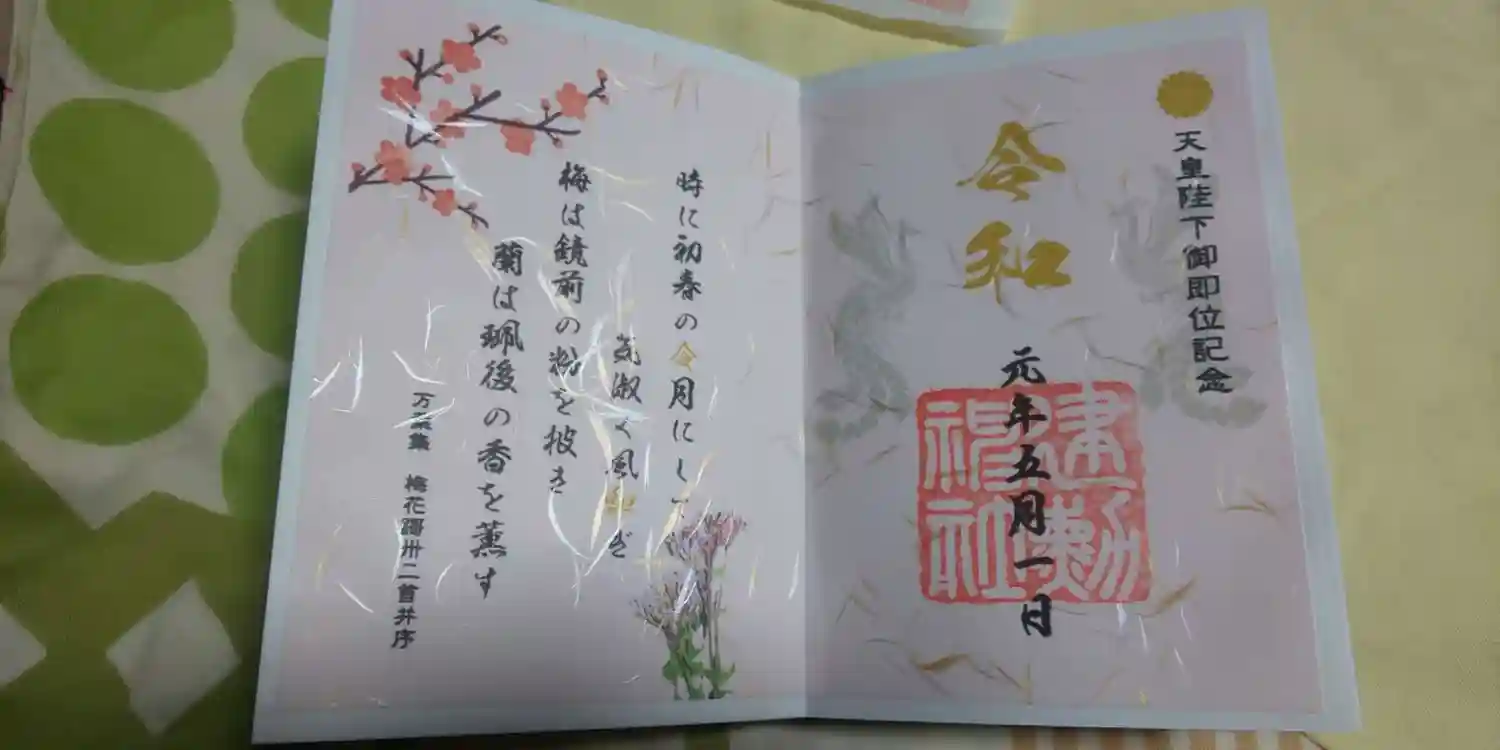 天皇陛下御即位記念
令和
元年五月一日
建勳神社
時に初春の令月にして
気淑く風和ぎ
梅は鏡前の粉を披き
蘭は珮後の香を薫す
万葉集 梅花謌卅二首并序